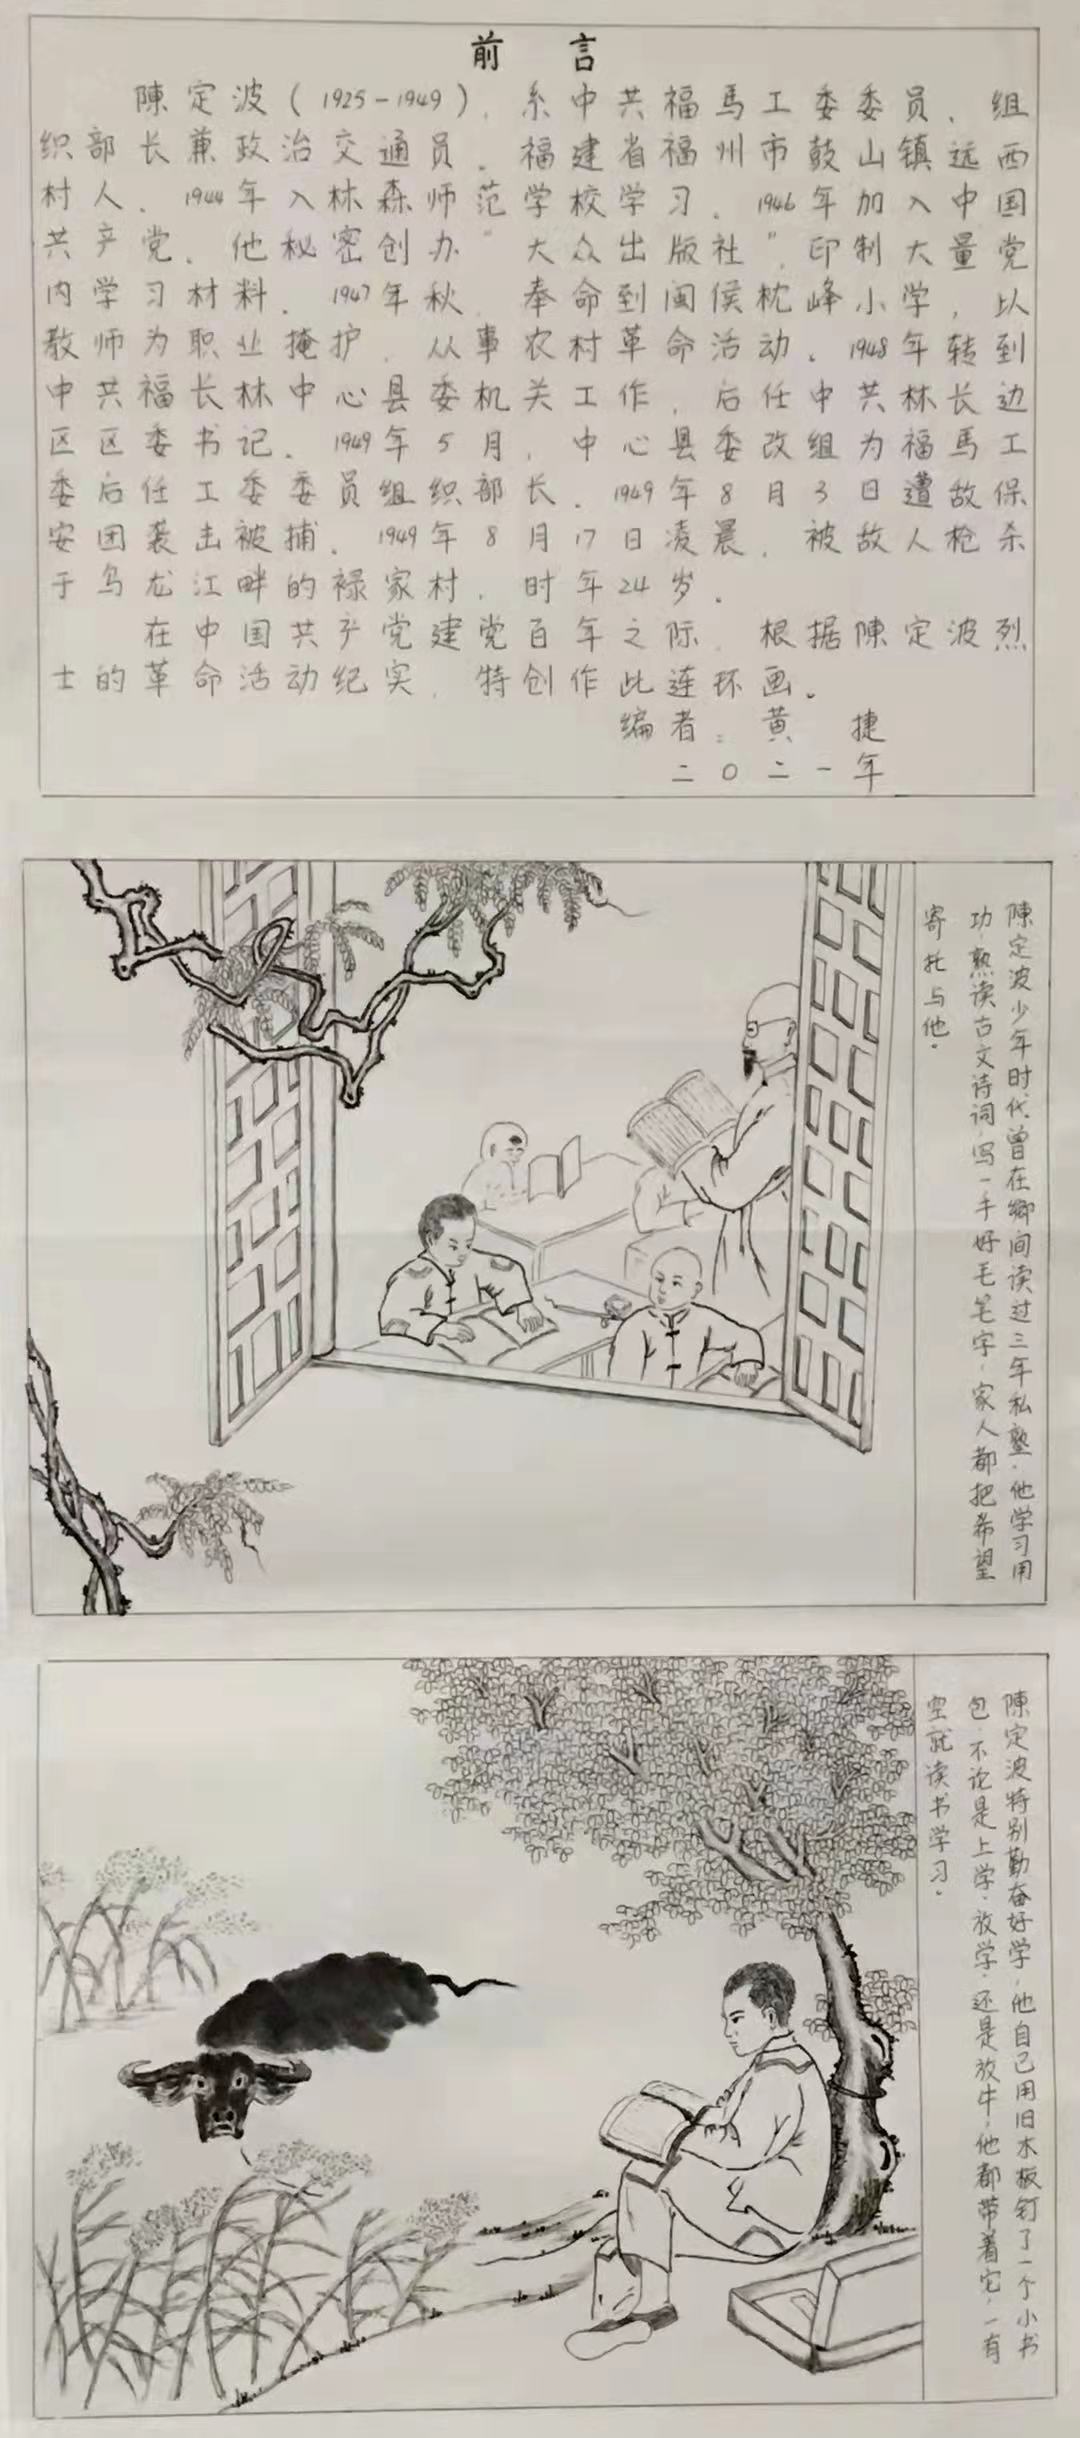 前言
陳定波（1925-1949），系中共福馬工委委员、组
织部长兼政治交通员。福建省福州市鼓山镇远西
村人。1944年入林森师范学校学习。1946年加入中国
共产党。他秘密创办“大众出版社”，印制大量党
内学习材料。1947年秋，奉命到闽侯枕峰小学，以
教师为职业掩护，从事农村革命活动。1948年转到
中共福长林中心县委机关工作，后任中共林长边
区区委书记。1949年5月，中心县委改组为福馬工
委后任工委委员组织部长。1949年8月3日遭敌保
安团袭击被捕。1949年8月17日凌晨，被敌人枪杀
于乌龙江畔的禄家村，时年24岁。
在中国共产党建党百年之际，根据陳定波烈
士的革命活动纪实，特创作此连环画。
编者：黄捷
二〇二一年
陳定波少年时代曾在鄉间读过三年私塾，他学习用
功，熟读古文诗词，写一手好毛笔字，家人都把希望
寄托与他。
陳定波特别勤奋好学，他自己用旧木板钉了一个小书
包，不论是上学，放学，还是放牛，他都带着它，一有
空就读书学习。